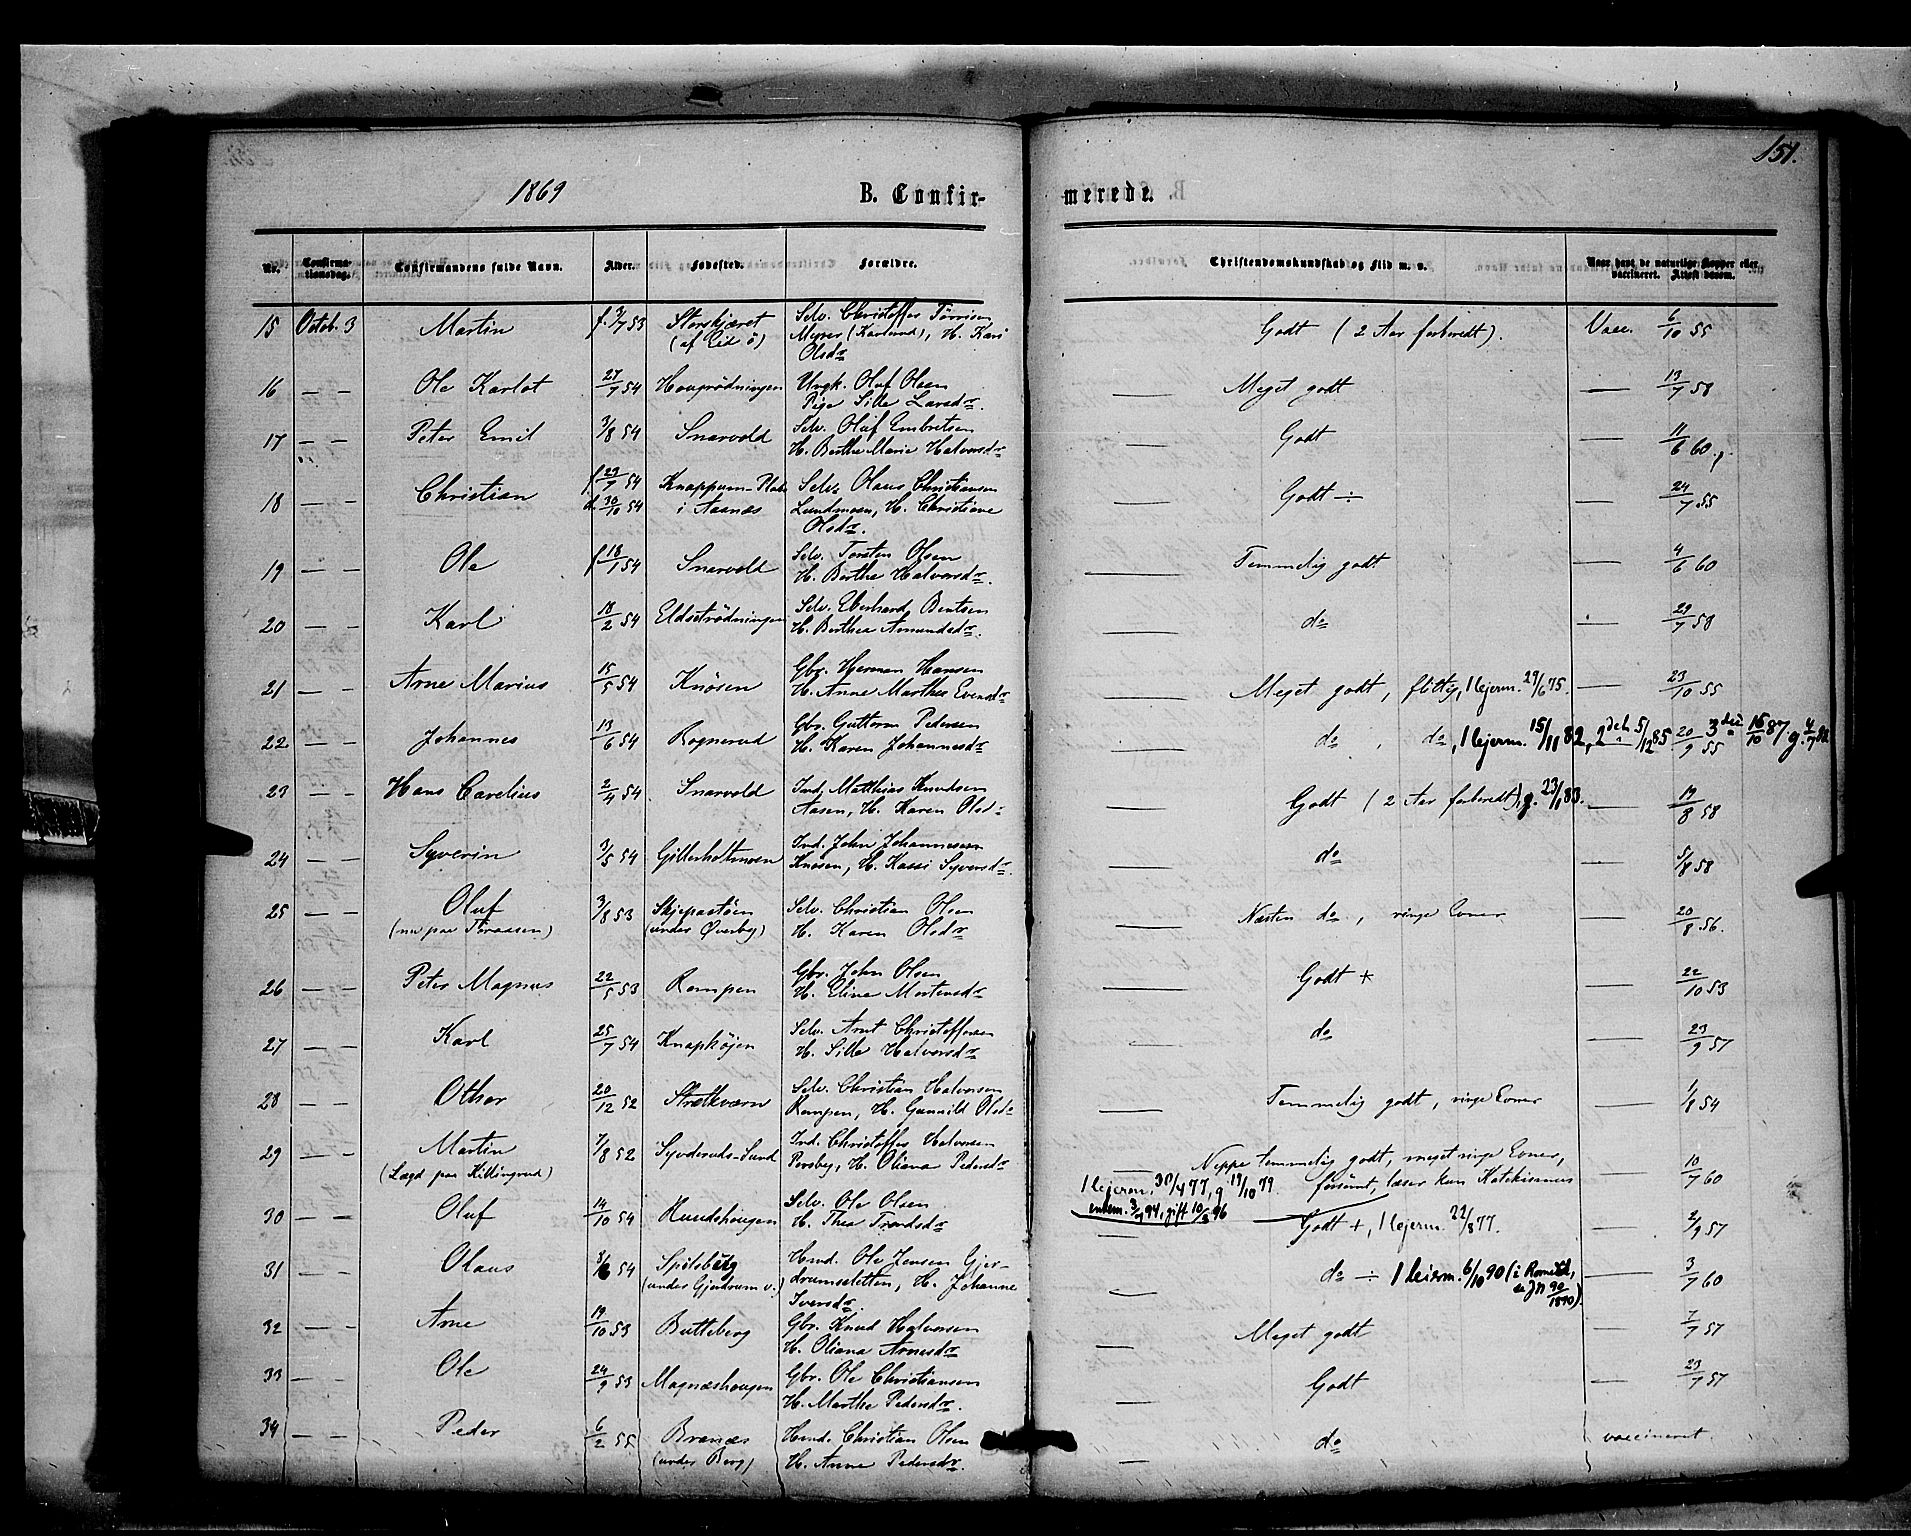 151.
1869 B. Confir- merede.
Nr. Confirma-tionsdag. Confirmandens fulde Navn. Alder. Fødested. Forældre. Christendomskundskab og Flid m. v. Naar havt de naturlige Kopper eller vaccineret. Attest derom.
15 Octob. 3 Martin f. 3/7 53 Storskjæret Selv. Christoffer Tørrisen Godt (2 Aar forberedt). Vacc. 6/10 55
(af Eid ö) Myrer (Karlsrud), H. Kari
Olsdr
16 — — Ole Karlot 27/7 54 Houprödningen Ungk. Oluf Olsen — Meget godt — 13/7 58
Pige Sille Larsdr.
17 — — Peter Emil 3/8 54 Snarvold Selv. Oluf Embretsen — Godt — 11/6 60
H. Berthe Marie Halvorsdr
18 — — Christian f 29/7 54 Knappum-Plads Selv. Olaus Christiansen — Godt ÷ — 24/7 55
d. 30/10 54 i Aasnæs Lundmoen, H. Christiane
Olsdr.
19 — — Ole f 18/1 54 Snarvold Selv. Torsten Olsen — Temmelig godt — 4/6 60
H. Berthe Halvorsdr.
20 — — Karl 18/2 54 Eldsetrödningen Selv. Eberhard Bentsen — do — 29/7 58
H. Berthea Amundsdr.
21 — — Arne Marius 15/5 54 Knösen Gbr. Herman Hansen — Meget godt, flittig, 1 lejerm. 29/6 75. — 23/10 55
H. Anne Marthea Evensdr
22 — — Johannes 13/6 54 Rognerud Gbr. Guttorm Pedersen — do, do, 1 lejerm. 15/11 82, 2det 5/12 85 20/9 55 3die 16/10 87. g. 4/7 88
H. Karen Johannesdr
23 — — Hans Carelius 2/4 54 Snarvold Ind. Matthias Knudsen — Godt (2 Aar forberedt), g. 23/1 83. — 19/8 58
Aasen, H. Karen Olsdr
24 — — Syverin 3/5 54 Gillerholtmoen Ind. John Johannesen — do — 5/8 58
Knosen, H. Kassi Syversdr.
25 — — Oluf 3/8 53 Skjepastöen Selv. Christian Olsen — Næsten do., ringe Evner — 20/8 56.
(nu paa Toraasen) (under Överby) H. Karen Olsdr
26 — — Peter Magnus 22/5 53 Rompen Gbr. John Olsen — Godt + — 22/10 53
H. Eline Mortensdr
27 — — Karl 25/7 54 Knaphöjen Selv. Arnt Christoffersen — do — 23/9 57
H. Sille Halvorsdr
28 — — Othar 20/12 52 Strætkværn Selv. Christian Halvorsen — Temmelig godt, ringe Evner — 1/8 54
Rompen, H. Gunnild Olsdr
29 — — Martin 7/8 52 Syvderuds-Sund Ind. Christoffer Halvorsen — Neppe temmelig godt, meget ringe Evner, — 10/7 60
(Lægd paa Killingrud) Persby, H. Oliana Pedersdr forsömt, læser kun Katekismus
1 lejerm. 30/4 77, g 19/10 79.
30 — — Oluf 14/10 54 Hundshougen Selv. Ole Olsen enkem. 3/7 94, gift 10/8 96
H. Thea Trondsdr — Godt +, 1 lejerm. 22/8 77. — 2/9 57
31 — — Olaus 3/6 54 Spitsberg Hmd. Ole Jensen Gjer- — do ÷ 1 leierm. 6/10 90 (i Romedal, — 3/7 60
(under Gjerdrum v.) drumsletten, H. Johanne se JN 90/1890)
Iversdr.
32 — — Arne 19/10 53 Butteberg Gbr. Knud Halvorsen — Meget godt — 7/7 57
H. Oliana Arnesdr
33 — — Ole 24/9 53 Magnæshougen Gbr. Ole Christiansen — Godt — 23/7 57
H. Marthe Pedersdr.
34 — — Peder 6/2 55 Branæs Hmd. Christian Olsen — do vaccineret.
(under Berg) H. Anne Pedersdr.